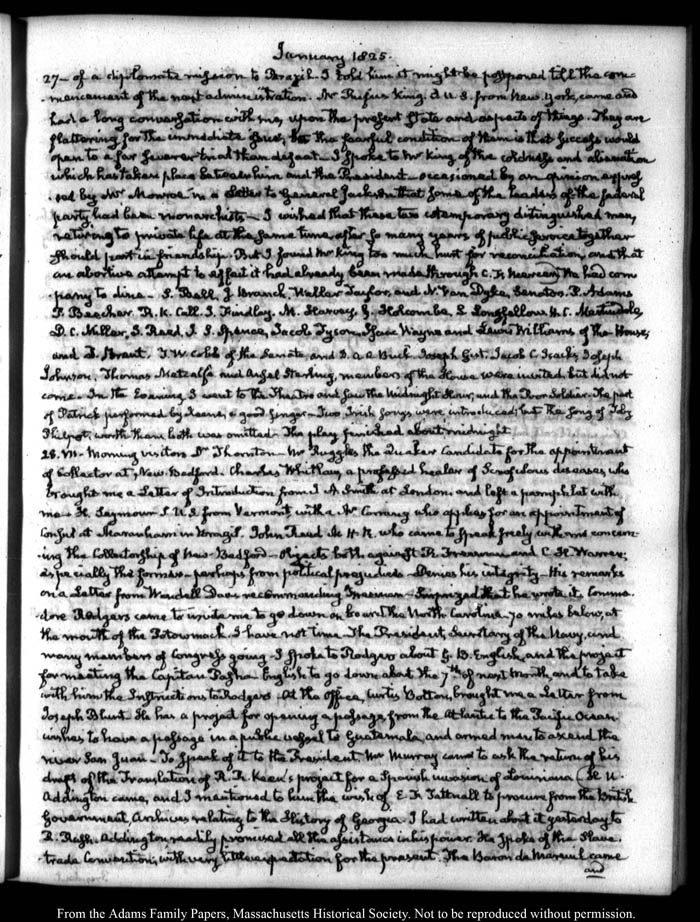 January 1825.
27 – of a diplomatic mission to Brazil. I told him it might be postponed till the com-
mencement of the next administration. Mr Rufus King. S.U.S. from New York, came and
had a long conversation with me, upon the present State and aspects of things. They are
flattering for the immediate issue; but the fearful condition of them is that success would
open to a far severer trial than defeat. I spoke to Mr King of the coldness and alienation
which has taken place between him and the President – occasioned by an opinion expres-
sed by Mr Monroe in a Letter to General Jackson that some of the leaders of the federal
party, had been monarchists – I wished that these two cotemporary distinguished men,
retiring to private life at the same time, after so many years of public service together
should part in friendship. But I found Mr King too much hurt for reconciliation, and that
an abortive attempt to effect it had already been made through C. F. Mercer. We had com-
pany to dine – S. Bell, J. Branch, Waller Taylor, and N. Van Dyke, Senators. P. Adams
P. Beecher. R. K. Call. J. Findlay. M. Harvey, G. Holcombe, S. Longfellow, H. C. Martindale,
D. C. Miller, S. Reed, J. S. Spence, Jacob Tyson, Isaac Wayne and Lewis Williams of the House;
and Brent. T. W. Cobb of the Senate, and D. A. A. Buck. Joseph Gist. Jacob C. Isacks, Joseph
Johnson. Thomas Metcalfe and Ansel Sterling, members of the House were invited but did not
come. In the Evening I went to the Theatre and saw the Midnight Hour, and the Poor Soldier. The part
of Patrick performed by Keene, a good Singer – Two Irish songs were introduced; but the Song of Toby
Philpot, worth them both was omitted. The play finished about midnight.
28. VII. Morning visitors Dr Thornton – Mr Ruggles the Quaker Candidate for the appointment
of Collector at New-Bedford. Charles Whitlaw, a professed healer of Scrofulous diseases, who
brought me a Letter of Introduction from J. A. Smith at London; and left a pamphlet with
me. H. Seymour S.U.S. from Vermont, with a Mr who applies for an appointment of
Consul at Maranham in Brazil. John Reed M. H. R. who came to speak freely with me concern-
ing the Collectorship of New-Bedford – Objects both against R. Freeman and C. H. Warren;
especially the former – perhaps from political prejudices – Denies his integrity. His remarks
on a Letter from Wendell Davis recommending Freeman – Surprized that he wrote it. Commo-
dore Rodgers came to invite me to go down on board the North Carolina – 70 miles below, at
the mouth of the Potowmack. I have not time. The President, Secretary of the Navy, and
many members of Congress going. I spoke to Rodgers about G. B. English, and the project
for meeting the Capitan Pasha. English to go down about the 7th of next Month, and to take
with him the Instructions to Rodgers. At the Office, Curtis Bolton, brought me a Letter from
Joseph Blunt. He has a project for opening a passage from the Atlantic to the Pacific Ocean.
wishes to have a passage in a public vessel to Guatemala, and armed men to ascend the
river San Juan – To speak of it to the President. Mr Murray came to ask the return of his
draft of the Translation of R. R. Keene's project for a Spanish invasion of Louisiana. H. U.
Addington came, and I mentioned to him the wish of E. F. Tattnall to procure from the British
Government Archives relating to the History of Georgia. I had written about it yesterday to
R. Rush. Addington readily promised all the assistance in his power. He spoke of the Slave-
trade Convention; with very little expectation for the present. The Baron de Mareuil came
and
From the Adams Family Papers, Massachusetts Historical Society. Not to be reproduced without permission.